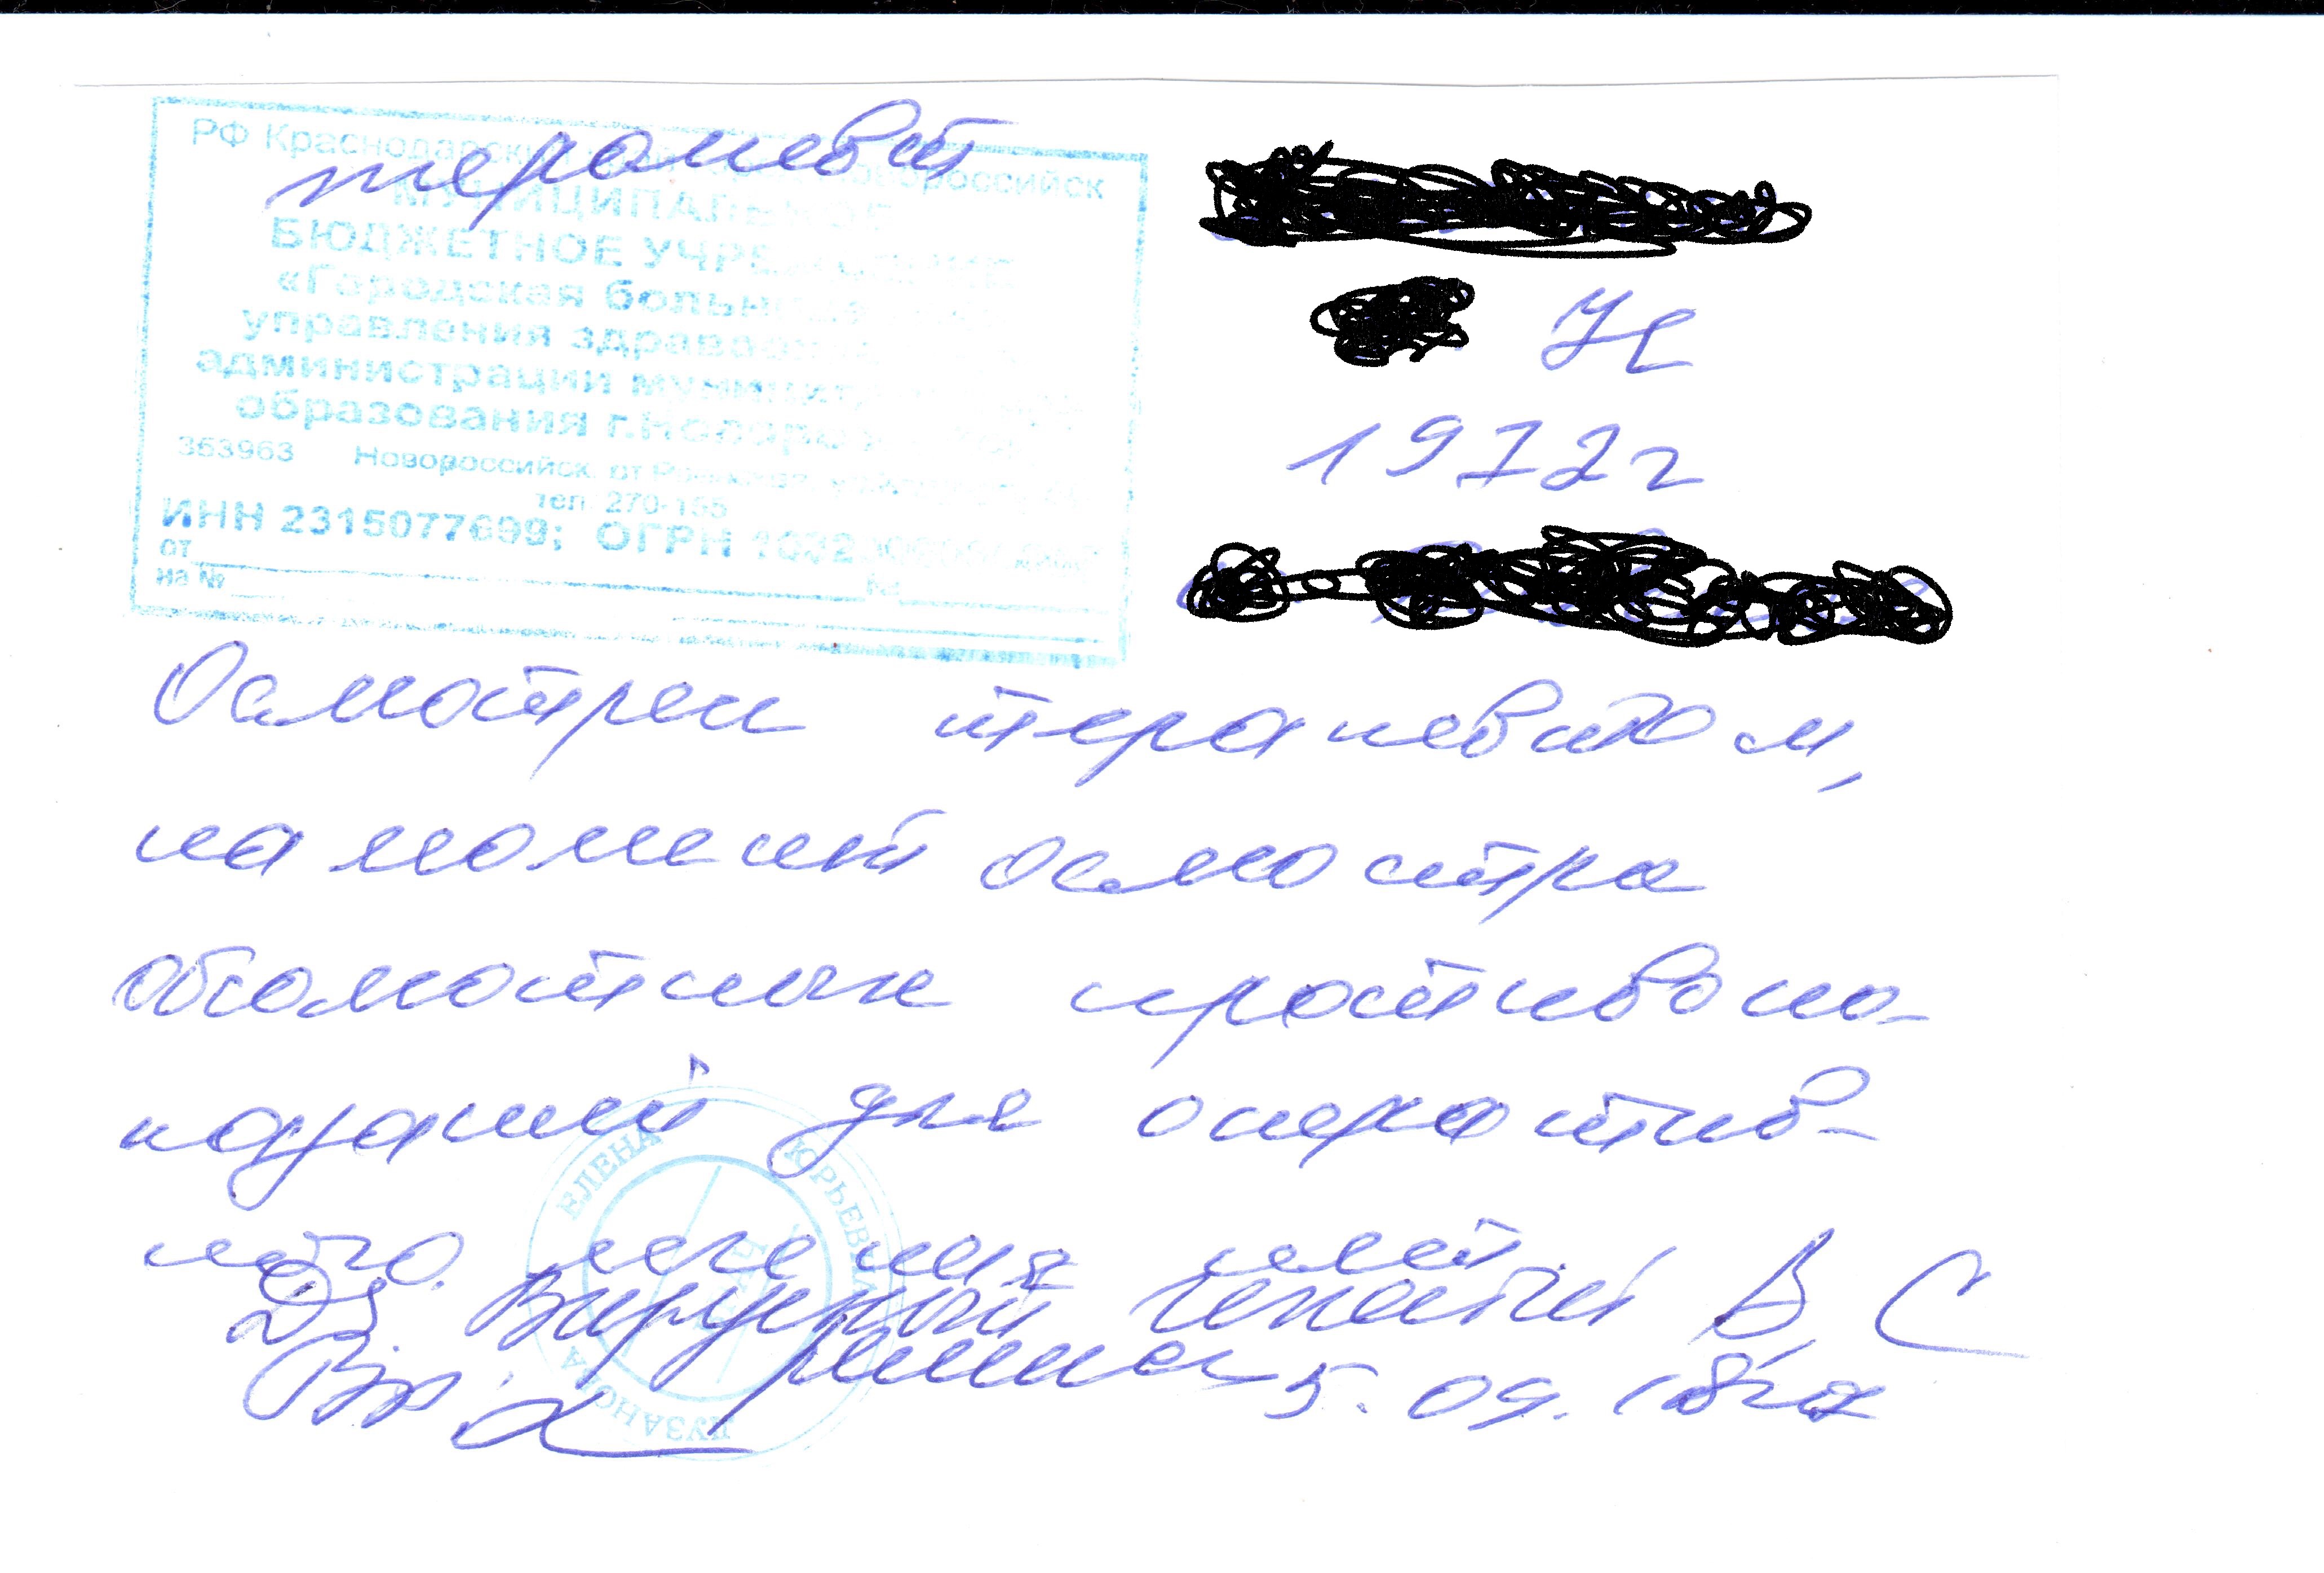 терапевт
РФ Краснодарский Новороссийск
МУНИЦИПАЛЬНОЕ
БЮДЖЕТНОЕ УЧРЕЖДЕНИЕ
«Городская больница
управления здравоохранения
администрации муниципального
образования г.Новороссийск
353963 Новороссийск
тел. 270-155
ИНН 2315077699; ОГРН 1032
от №
на №
1972г
Осмотрен терапевтом,
на момент осмотра
абсолютных противопо-
казаний для оператив-
ного лечения нет
Ds. Вирусный гепатит В С
Врач 5. 09. 18г
ЕЛЕНА ЮРЬЕВНА
ВРАЧ